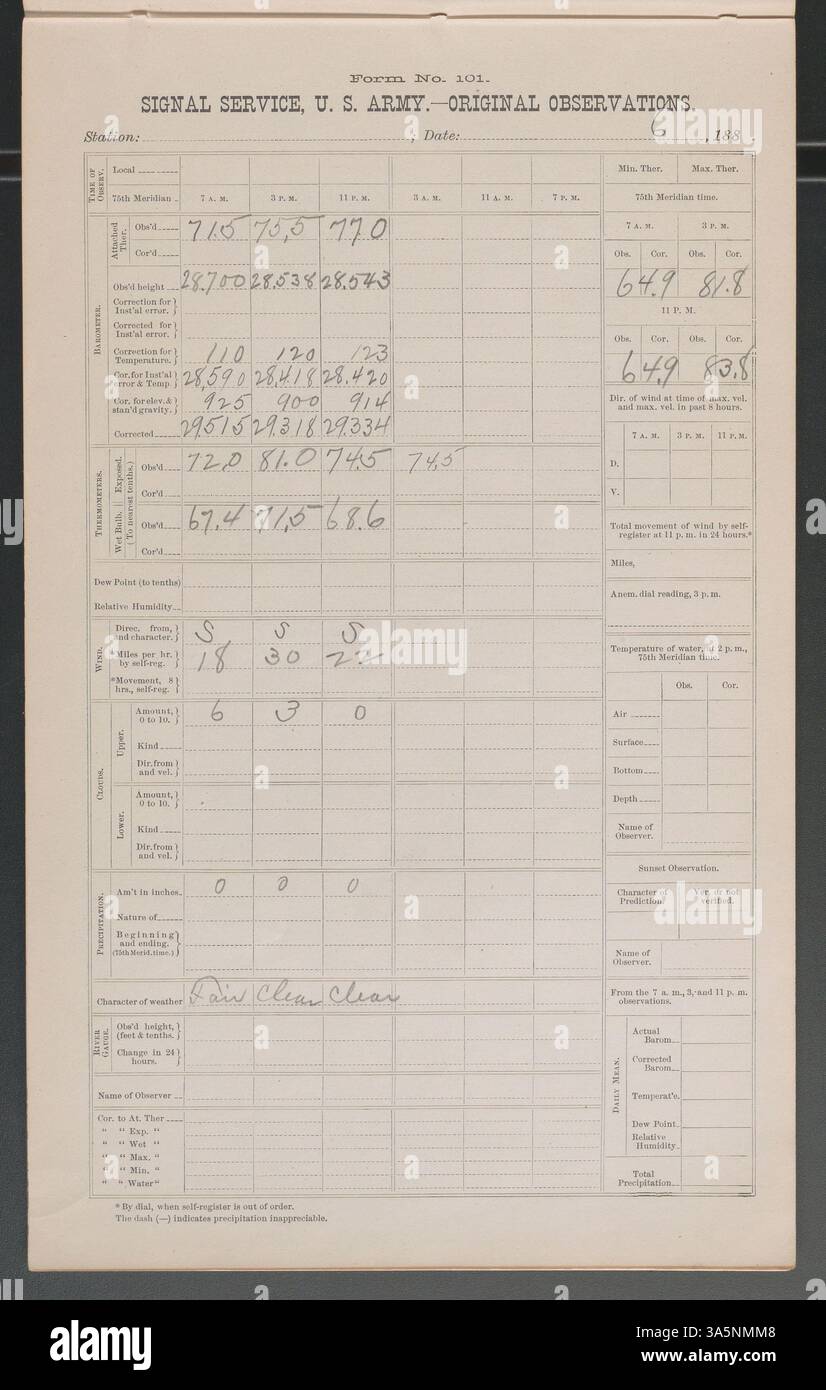 Form No. 101.
SIGNAL SERVICE, U. S. ARMY.—ORIGINAL OBSERVATIONS.
Station: ; Date: 6 , 188 .
TIME OF OBSERV.
Local
75th Meridian 7 A. M. 3 P. M. 11 P. M. 3 A. M. 11 A. M. 7 P. M.
BAROMETER.
Attached Ther.
Obs'd 71.5 75,5 77.0
Cor'd
Obs'd height 28.700 28.538 28.543
Correction for Inst'al error.
Corrected for Inst'al error.
Correction for Temperature. 110 120 123
Cor. for Inst'al error & Temp. 28,590 28.418 28.420
Cor. for elev. & stan'd gravity. 925 900 914
Corrected 29.515 29.318 29.334
THERMOMETERS.
Exposed.
Wet Bulb.
(To nearest tenths.)
Obs'd 72,0 81.0 74.5 74,5
Cor'd
Obs'd 67.4 71,5 68.6
Cor'd
Dew Point (to tenths)
Relative Humidity
WIND.
Direc. from, and character. S S S
*Miles per hr. by self-reg. 18 30 22
*Movement, 8 hrs., self-reg.
CLOUDS.
Upper.
Amount, 0 to 10. 6 3 0
Kind
Dir. from and vel.
Lower.
Amount, 0 to 10.
Kind
Dir. from and vel.
PRECIPITATION.
Am't in inches. 0 0 0
Nature of
Beginning and ending. (75th Merid. time.)
Character of weather Fair Clear Clear
RIVER GAUGE.
Obs'd height, (feet & tenths.)
Change in 24 hours.
Name of Observer
Cor. to At. Ther
" " Exp. "
" " Wet "
" " Max. "
" " Min. "
" " Water "
* By dial, when self-register is out of order.
The dash (—) indicates precipitation inappreciable.
Min. Ther. Max. Ther.
75th Meridian time.
7 A. M. 3 P. M.
Obs. Cor. Obs. Cor.
64.9 81.8
11 P. M.
Obs. Cor. Obs. Cor.
64.9 83.8
Dir. of wind at time of max. vel.
and max. vel. in past 8 hours.
7 A. M. 3 P. M. 11 P. M.
D.
V.
Total movement of wind by self-
register at 11 p. m. in 24 hours.*
Miles,
Anem. dial reading, 3 p. m.
Temperature of water, at 2 p. m.,
75th Meridian time.
Obs. Cor.
Air
Surface
Bottom
Depth
Name of Observer.
Sunset Observation.
Character of Prediction. Ver. or not verified.
Name of Observer.
From the 7 a. m., 3, and 11 p. m.
observations.
DAILY MEAN.
Actual Barom.
Corrected Barom.
Temperat'e.
Dew Point.
Relative Humidity.
Total Precipitation
alamy
Image ID: 3A5NMM8
www.alamy.com